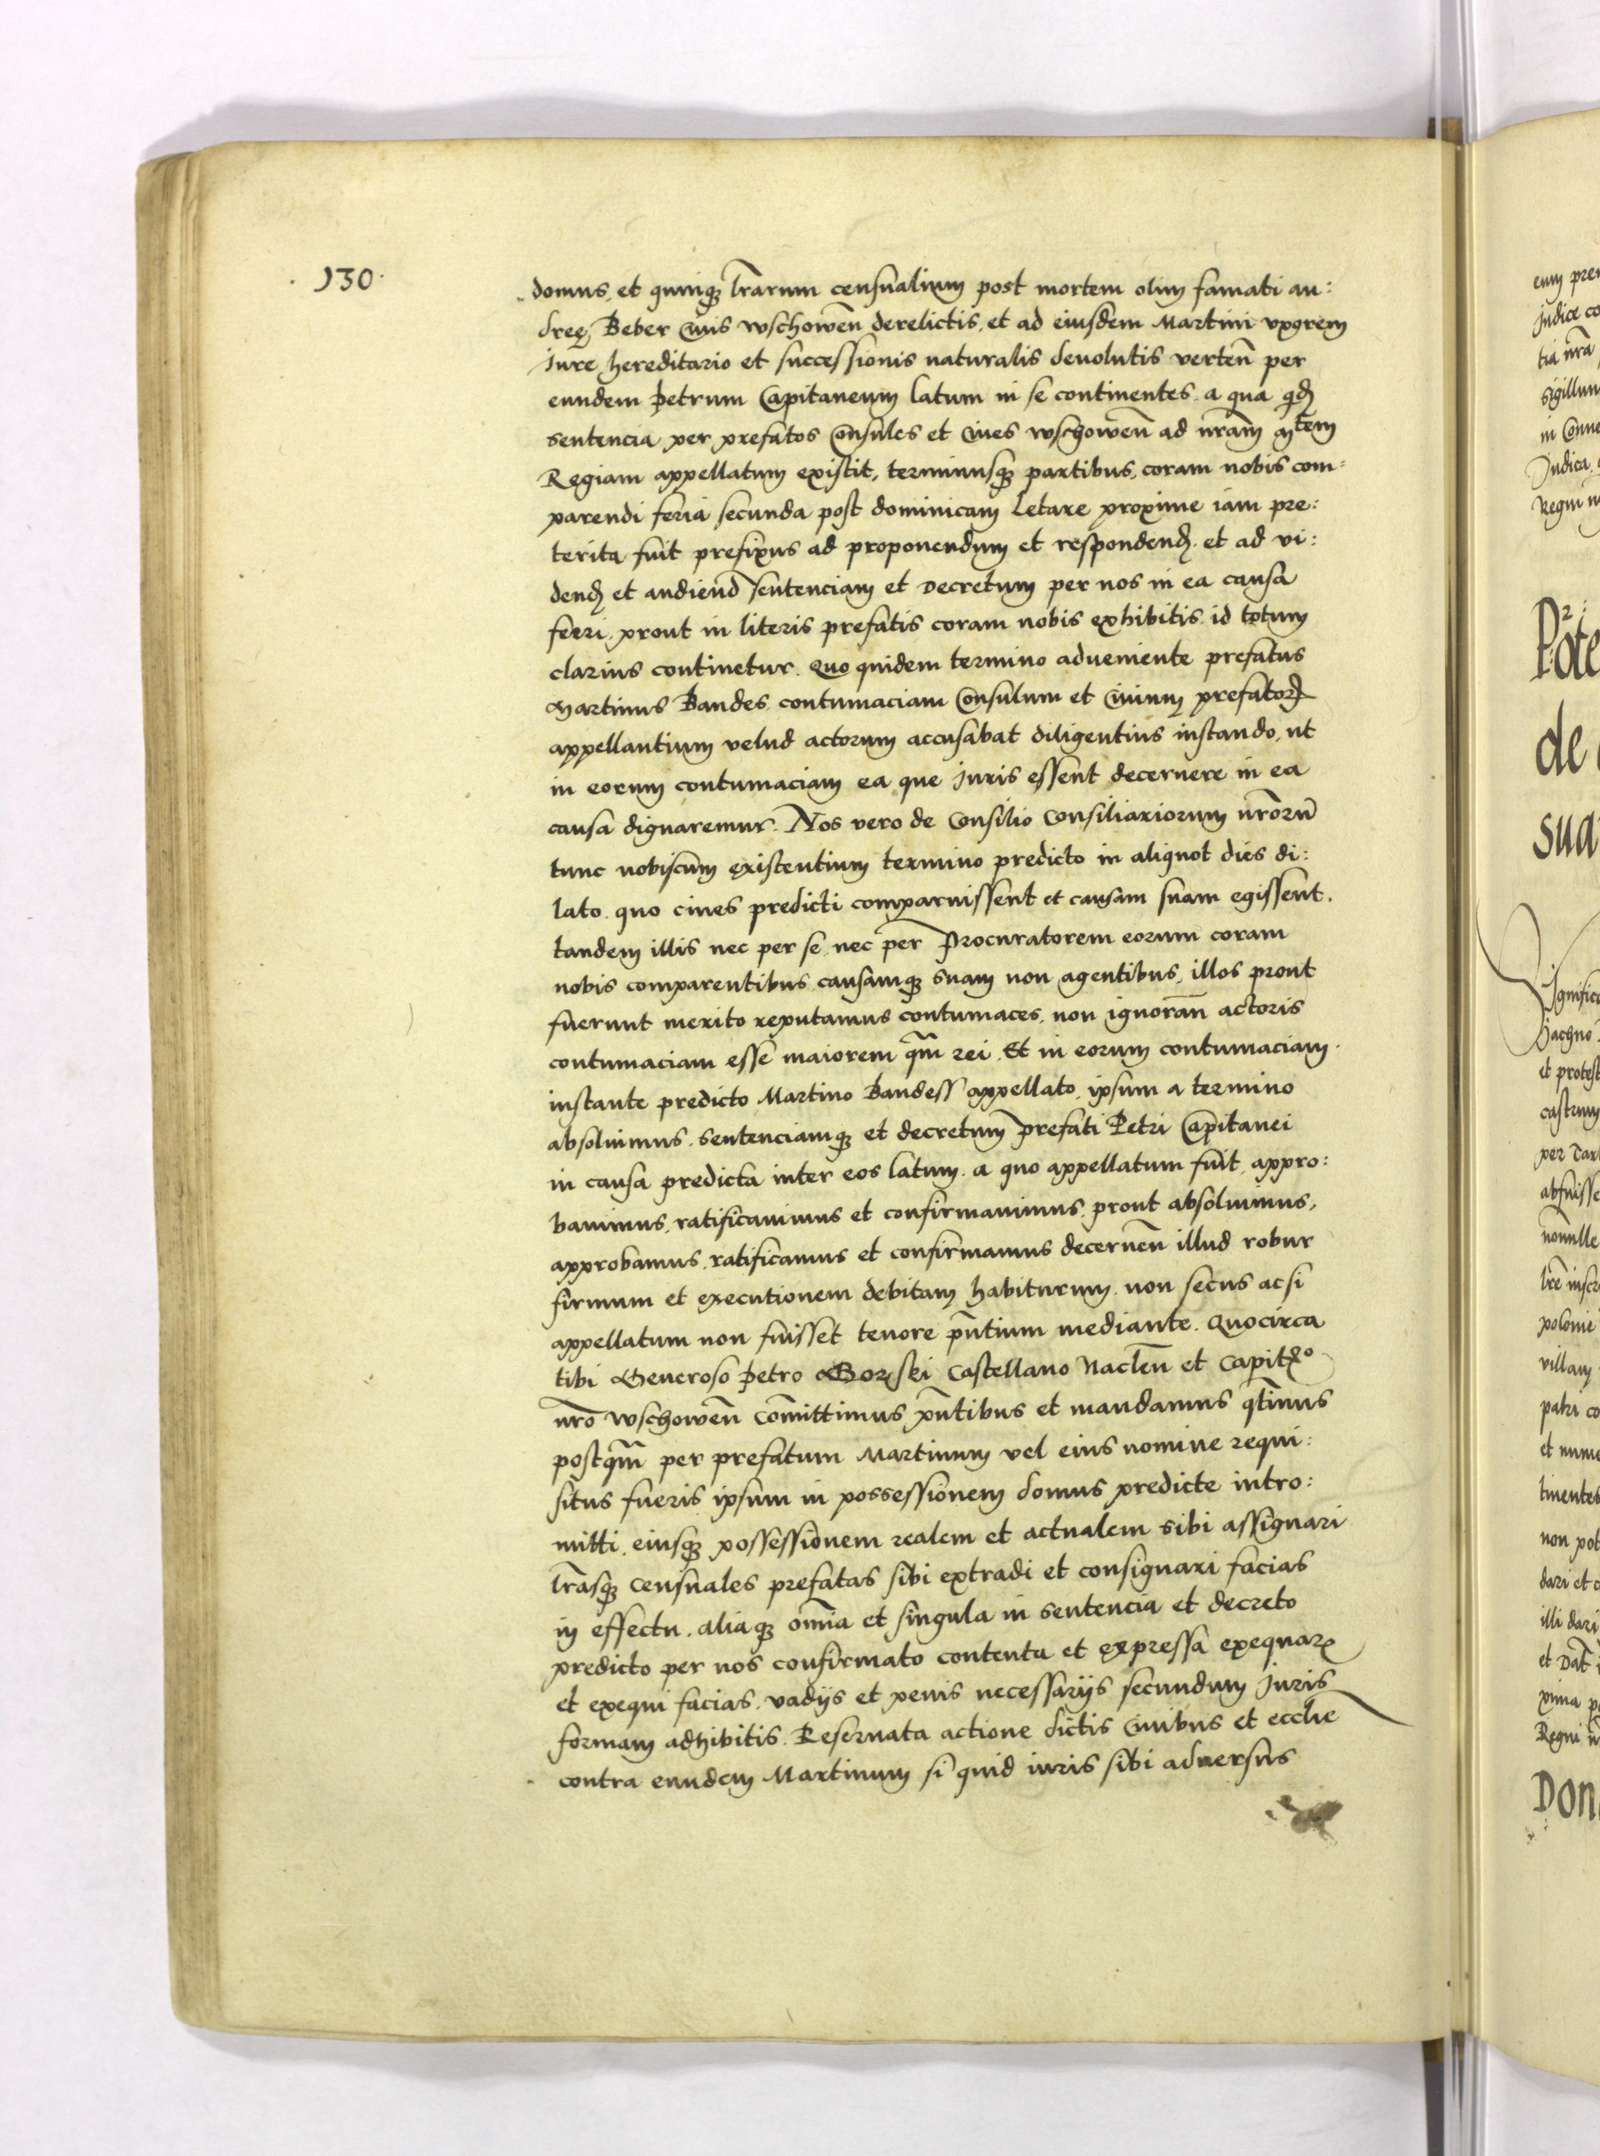 130
domus, et quinqʒ lr̄arum censualium post mortem olim famati an:
dreę Beber Ciuis wschowen̄ derelictis, et ad eiusdem Martini vxorem
Jure hereditario et successionis naturalis deuolutis verten̄ per
eundem petrum Capitaneum latum in se continentes. a qua qđ
sentencia per prefatos Consules et Ciues wschowen̄ ad nr̄am Mtem
Regiam appellatum existit, terminusqʒ partibus, coram nobis com:
parendi feria secunda post dominicam letare proxime iam pre:
terita fuit prefixus ad proponendum et respondenđ. et ad vi:
denđ et audiend sentenciam et Decretum per nos in ea causa
ferri. prout in literis prefatis coram nobis exhibitis id totum
clarius continetur. Quo quidem termino adueniente prefatus
Martinus Bandes contumaciam Consulum et Ciuium prefatorꝝ
appellantium velud actorum accusabat diligentius instando, ut
in eorum contumaciam ea que Juris essent decernere in ea
causa dignaremur. Nos vero de Consilio Consiliariorum nr̄orū
tunc nobiscum existentium termino predicto in aliquot dies di:
lato. quo ciues predicti comparuissent et causam suam egissent.
tandem illis nec per se, nec per Procuratorem eorum coram
nobis comparentibus causamqʒ suam non agentibus, illos prout
fuerunt merito reputamus contumaces. non ignoran̄ actoris
contumaciam esse maiorem qm̄ rei. Et in eorum contumaciam.
instante predicto Martino Bandess appellato, ipsum a termino
absoluimus. sentenciamqʒ et decretum prefati Petri Capitanei
in causa predicta inter eos latum. a quo appellatum fuit, appro:
bauimus, ratificauimus et confirmauimus, prout absoluimus,
approbamus, ratificamus et confirmamus decernen̄ illud robur
firmum et executionem debitam habiturum. non secus ac si
appellatum non fuisset tenore pn̄tium mediante. Quocirca
tibi Generoso petro Gorski Castellano Naclen̄ et Capitꝰo
nr̄o wschowen̄ com̄ittimus pn̄tibus et mandamus qt̄inus
postqm̄ per prefatum Martinum vel eius nomine requi:
situs fueris ipsum in possessionem domus predicte intro:
mitti. eiusqʒ possessionem realem et actualem sibi assignari
lr̄asqʒ Censuales prefatas sibi extradi et consignari facias
in effectu. aliaqʒ om̄ia et singula in sentencia et decreto
predicto per nos confirmato contenta et expressa exequarꝭ
et exequi facias. vadijs et penis necessarijs secundum Juris
formam adhibitis. Reseruata actione dictis Ciuibus et eccl̄ie
contra eundem Martinum si quid iuris sibi aduersus